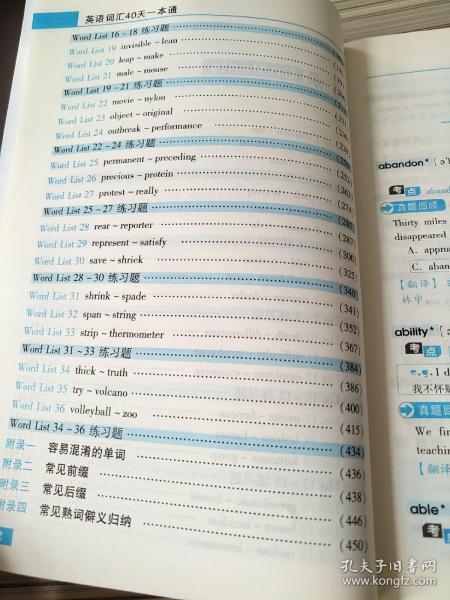 英语词汇40天一本通
Word List 16~18 练习题
Word List 19 invisible~lean
Word List 20 leap~make
Word List 21 male~mouse
Word List 19~21 练习题
Word List 22 movie~nylon
Word List 23 object~original
Word List 24 outbreak~performance
Word List 22~24 练习题
Word List 25 permanent~preceding
Word List 26 precious~protein
Word List 27 protest~really
Word List 25~27 练习题 (285)
Word List 28 rear~reporter (287)
Word List 29 represent~satisfy (300)
Word List 30 save~shrick (325)
Word List 28~30 练习题 (340)
Word List 31 shrink~spade (341)
Word List 32 span~string (352)
Word List 33 strip~thermometer (367)
Word List 31~33 练习题 (384)
Word List 34 thick~truth (386)
Word List 35 try~volcano (400)
Word List 36 volleyball~zoo (415)
Word List 34~36 练习题 (434)
附录一 容易混淆的单词 (436)
附录二 常见前缀 (438)
附录三 常见后缀 (446)
附录四 常见熟词僻义归纳 (450)
2
abandon*
考点 aband
真题回顾
Thirty miles
disappeared
A. appro
C. aban
【翻译】
林中。
ability*
考点
e.g. I d
我不怀疑
真题回
We fin
teachin
【翻译
able*
考
孔夫子旧书网
www.kongfz.com